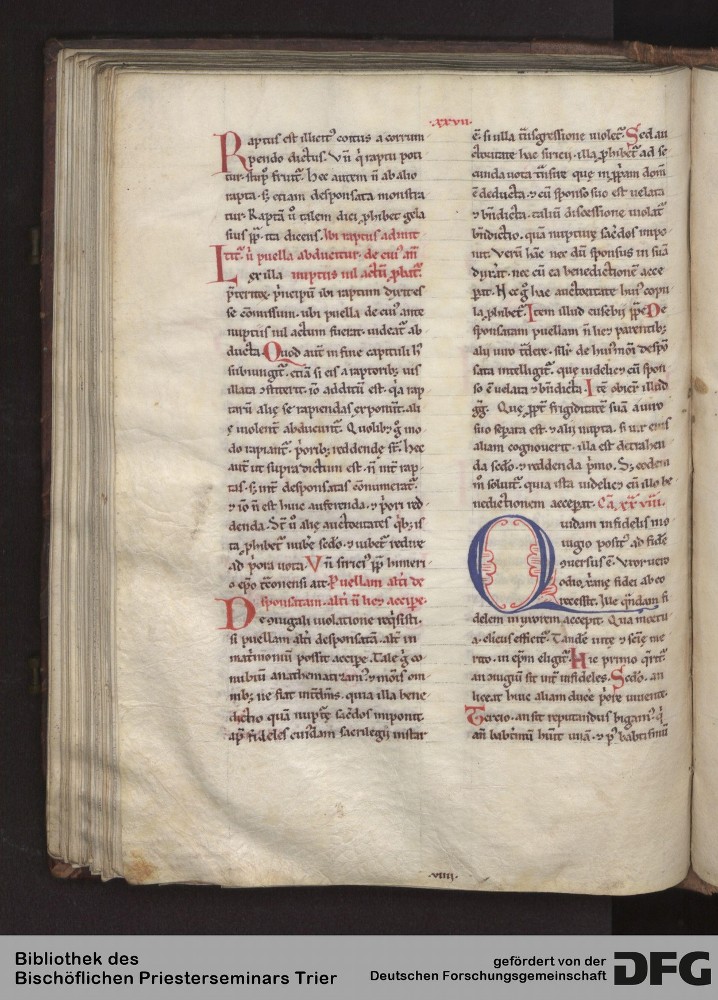 .xxvii.
Raptus est illicit᷒ coitus a corrum
pendo dictus. Vn̄ q̇ raptu poti
tur. stup̄ fruit᷒. Hec autem n̄ ab alio
rapta. s; etiam desponsata monstra
tur. Raptā ů talem dici ꝓhibet gela
sius pp̄. ita dicens. Ibi raptus admit
tit᷒. ů puella abducitur. de cui᷒ an̄
Lex illa nuptiis nil actū ꝓbat᷒.
p̄teritoꝝ p̄ncipum ibi raptum dixit es
se cōmissum. ubi puella de cui᷒ ante
nuptiis nil actum fuerat. uideat᷒ ab
ducta. Quod aut̄ in fine capituli h᷒
subiungit᷒. etiā si eis a raptorib; uis
illata extiterit. iō additū est. q̇a rap
tarū alię se rapiendas exponunt. ali
ę uiolent᷒ abducunt᷒. Quolib; g̊ mo
do rapiant᷒. p̄orib; reddendę st̄. Hec
aut̄ ut supra dictum est. n̄ int̄ rap
tas. s; int̄ desponsatas cōnumerat᷒.
⁊ iō n̄ est huic auferenda. ⁊ p̄ori red
denda. St̄ ů alię auctoritates q̇b; is
ta ꝓhibet᷒ nub̄e sc̄do. ⁊ iubet᷒ redire
ad p̄ora uota. Vn̄ siricī pp̄ himeri
o ep̄o t̄conensi ait. Puellam alt̄i de
sponsatam. alt̄i n̄ licȝ accipe.
De ꝯiugali uiolatione req̇sisti.
si puellam alt̄i desponsatā. alt̄ in
mat̄monium possit accipe. Tale g̊ co
nubiū anathematizam᷒. ⁊ mōis om
nib; ne fiat int̄dim᷒. quia illa bene
dictio quā nuptę sac̄dos imponit.
ap̄ fideles cui᷒dam sacrilegii instar
ē. si ulla t̄nsgressione uiolet᷒. Sed au
ctoritate hac siricii. illa ꝓhibet᷒ ad se
cunda uota t̄nsire. quę in ꝓp̄am dom̄
ē deducta. ⁊ cū sponso suo est uelata
⁊ bn̄dicta. taliū discessione uiolat᷒
bn̄dictio. quā nupturę sac̄dos impo
nit. Verū hāc nec dū sponsus in suā
dux̄at. nec cū ea benedictionem acce
pat. H ec g̊ hac auctoritate hui᷒ copu
la ꝓhibet᷒. Item illud eusebij pp̄e. De
sponsatam puellam n̄ licȝ parentib;
alij uiro t̄dere. silr̄ de hui᷒mōi despō
sata intelligit᷒. quę uidelicȝ cū spon
so ē uelata ⁊ bn̄dicta. Itē obicit᷒ illud
g̊g᷒. Quę ꝓpt̄ frigiditatē suā a uiro
suo separata est. ⁊ alij nupta. si uir eius
aliam cognouerit. illa est detrahen
da sc̄do. ⁊ reddenda p̄mo. S; eodem
m̊ soluit᷒. quia ista uidelicȝ cū illo be
nedictionem accepat. Cā. xxviii.
Quidam infidelis in ꝯ
iugio posit᷒ ad fidē
ꝯuersus ē. Vxor uero
odio xp̄ianę fidei ab eo
recessit. Ille q̄ndam fi
delem in uxorem accepit. Qua mortu
a. clicus efficit᷒. Tandē uitę ⁊ sciētię me
rito. in ep̄m eligit᷒. Hic primo q̊rit᷒.
an ꝯiugiū sit int̄ infideles. Sc̄do. an
liceat huic aliam duc̄e p̄ore uiuente.
Tercio. an sit reputandus bigam᷒. q̇
an̄ baptismū huit unā. ⁊ p᷒ babtismū
.viiii.
Bibliothek des
Bischöflichen Priesterseminars Trier
gefördert von der
Deutschen Forschungsgemeinschaft
DFG